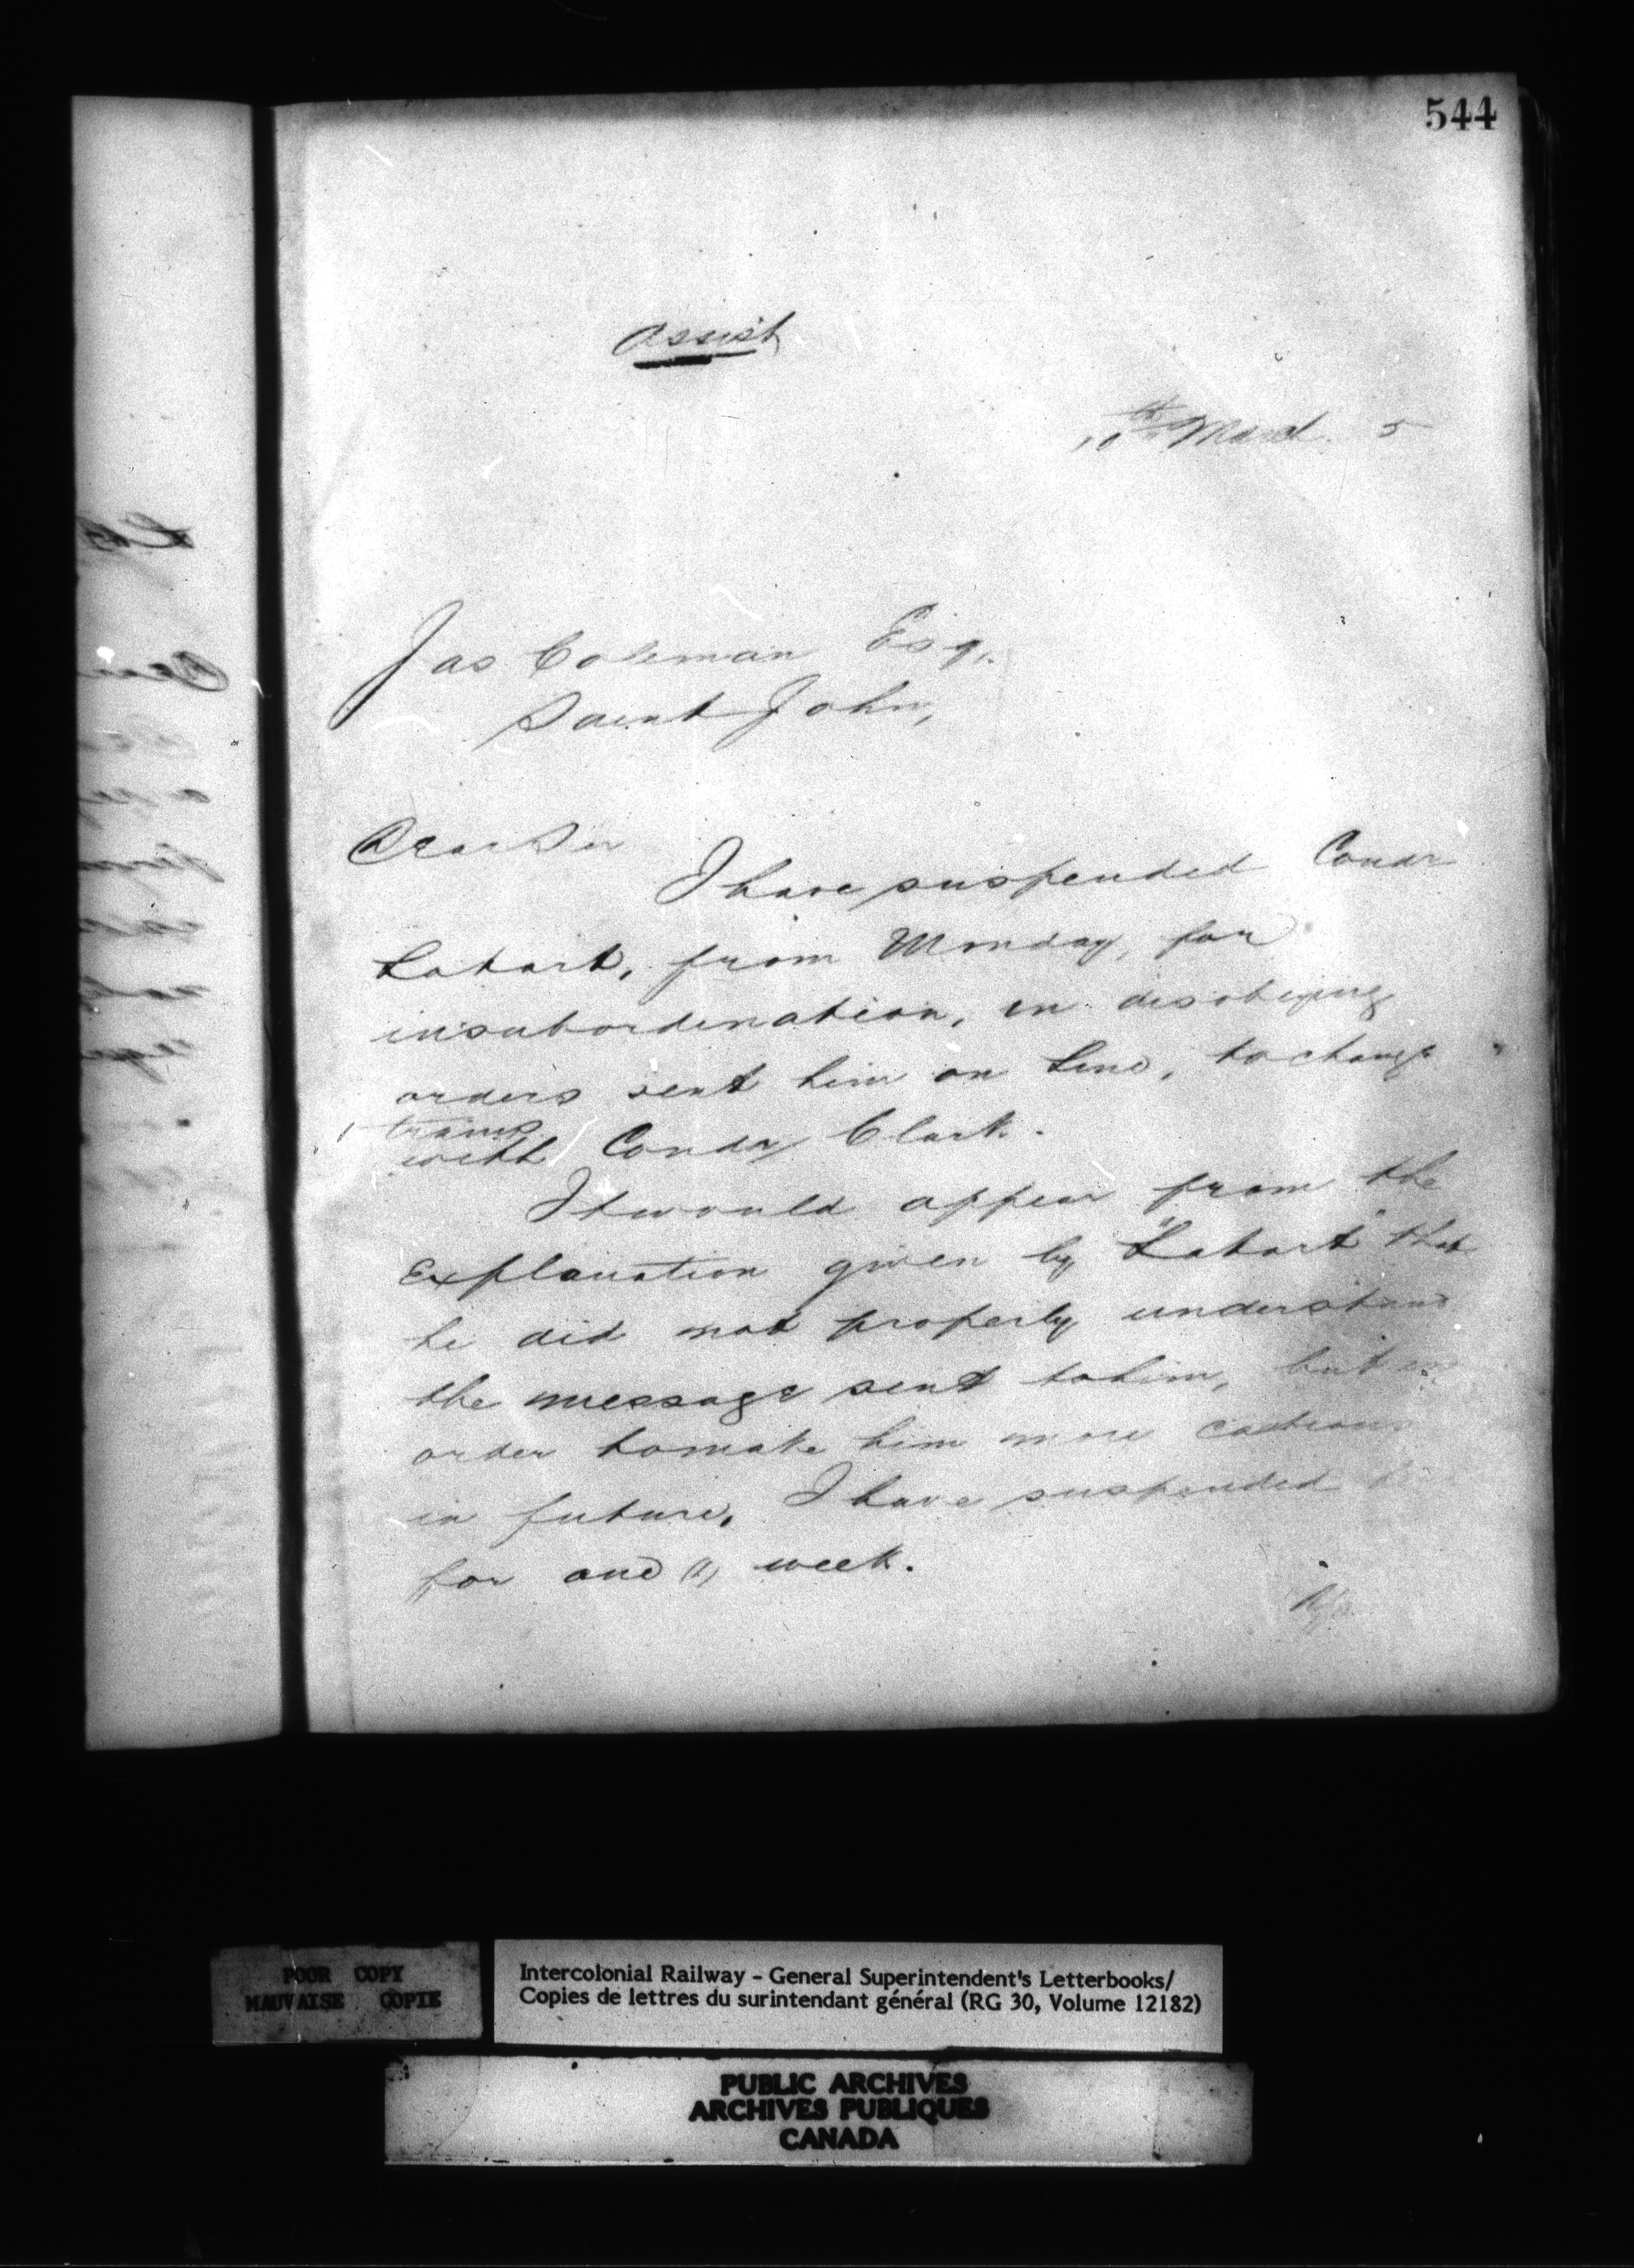 544
Assist
10th March 5
Jas Coleman Esq.
Saint John,
Dear Sir
I have suspended Condr
Lahart, from Monday, for
insubordination, in disobeying
orders sent him on Line, to change
trains
with Condr Clark.
It would appear from the
Explanation given by "Lahart" that
he did not properly understand
the message sent to him, but in
order to make him more cautious
in future, I have suspended
for one (1) week.
POOR COPY
MAUVAISE COPIE
Intercolonial Railway - General Superintendent's Letterbooks/
Copies de lettres du surintendant général (RG 30, Volume 12182)
PUBLIC ARCHIVES
ARCHIVES PUBLIQUES
CANADA